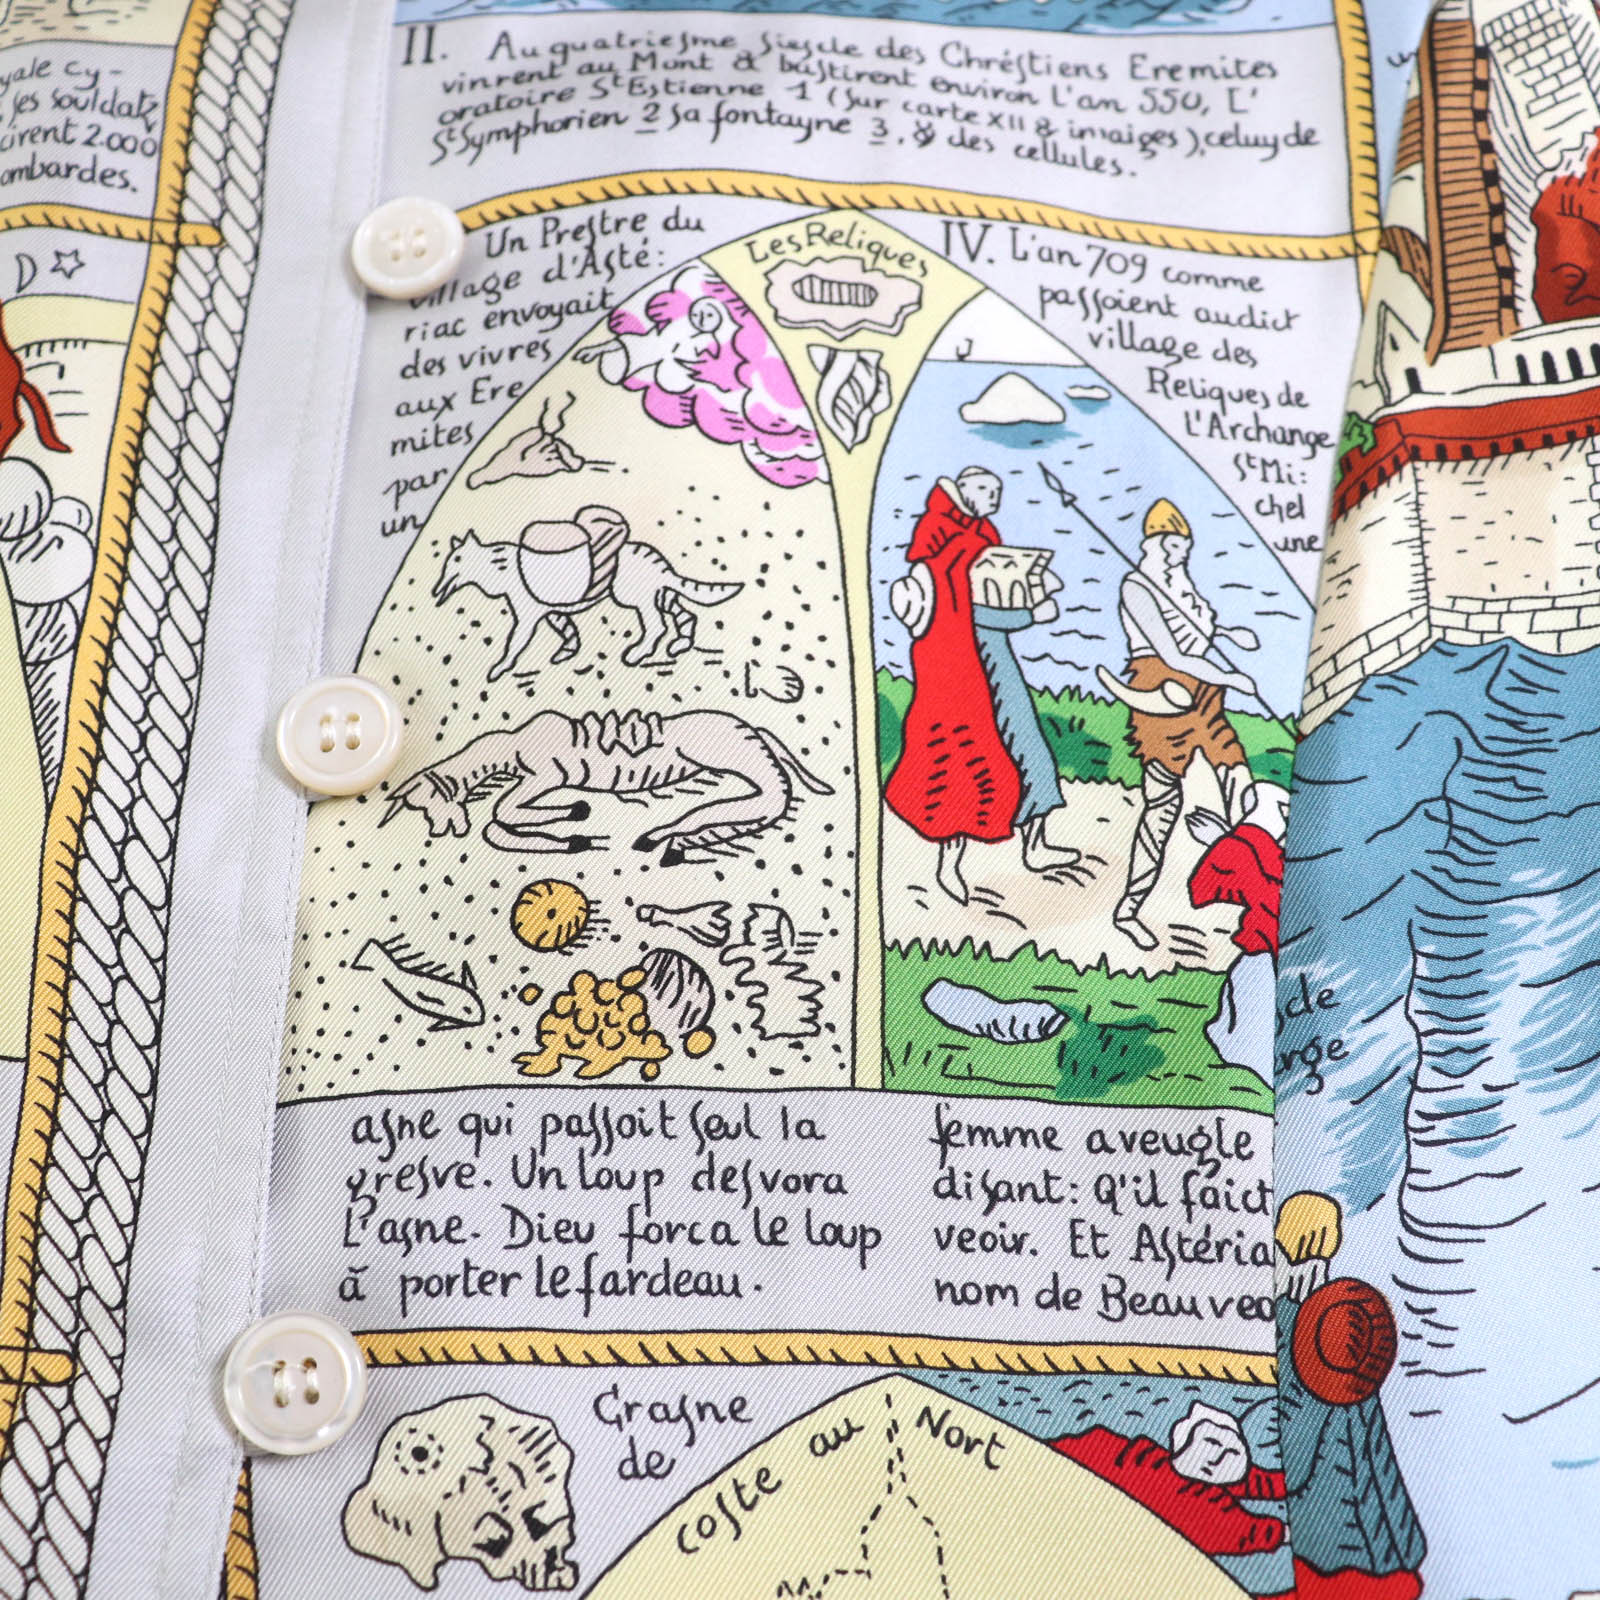 yale cy-
ses souldatz
cirent 2.000
ombardes.
D
II. Au quatriesme siescle des Chréstiens Eremites
vinrent au Mont & bastirent environ l'an 550, L'
oratoire St Estienne 1 (sur carte XII & imaiges), celuy de
St Symphorien 2 sa fontayne 3, & des cellules.
Un Prestre du
village d'Asté:
riac envoyait
des vivres
aux Ere
mites
par
un
Les Reliques
IV. L'an 709 comme
passoient audict
village des
Reliques de
l'Archange
St Mi:
chel
une
asne qui passoit seul la
gresve. Un loup desvora
L'asne. Dieu forca le loup
à porter le fardeau.
femme aveugle
disant: Q'il faict
veoir. Et Astéria
nom de Beauveo
cle
ange
Crasne
de
coste au Nort